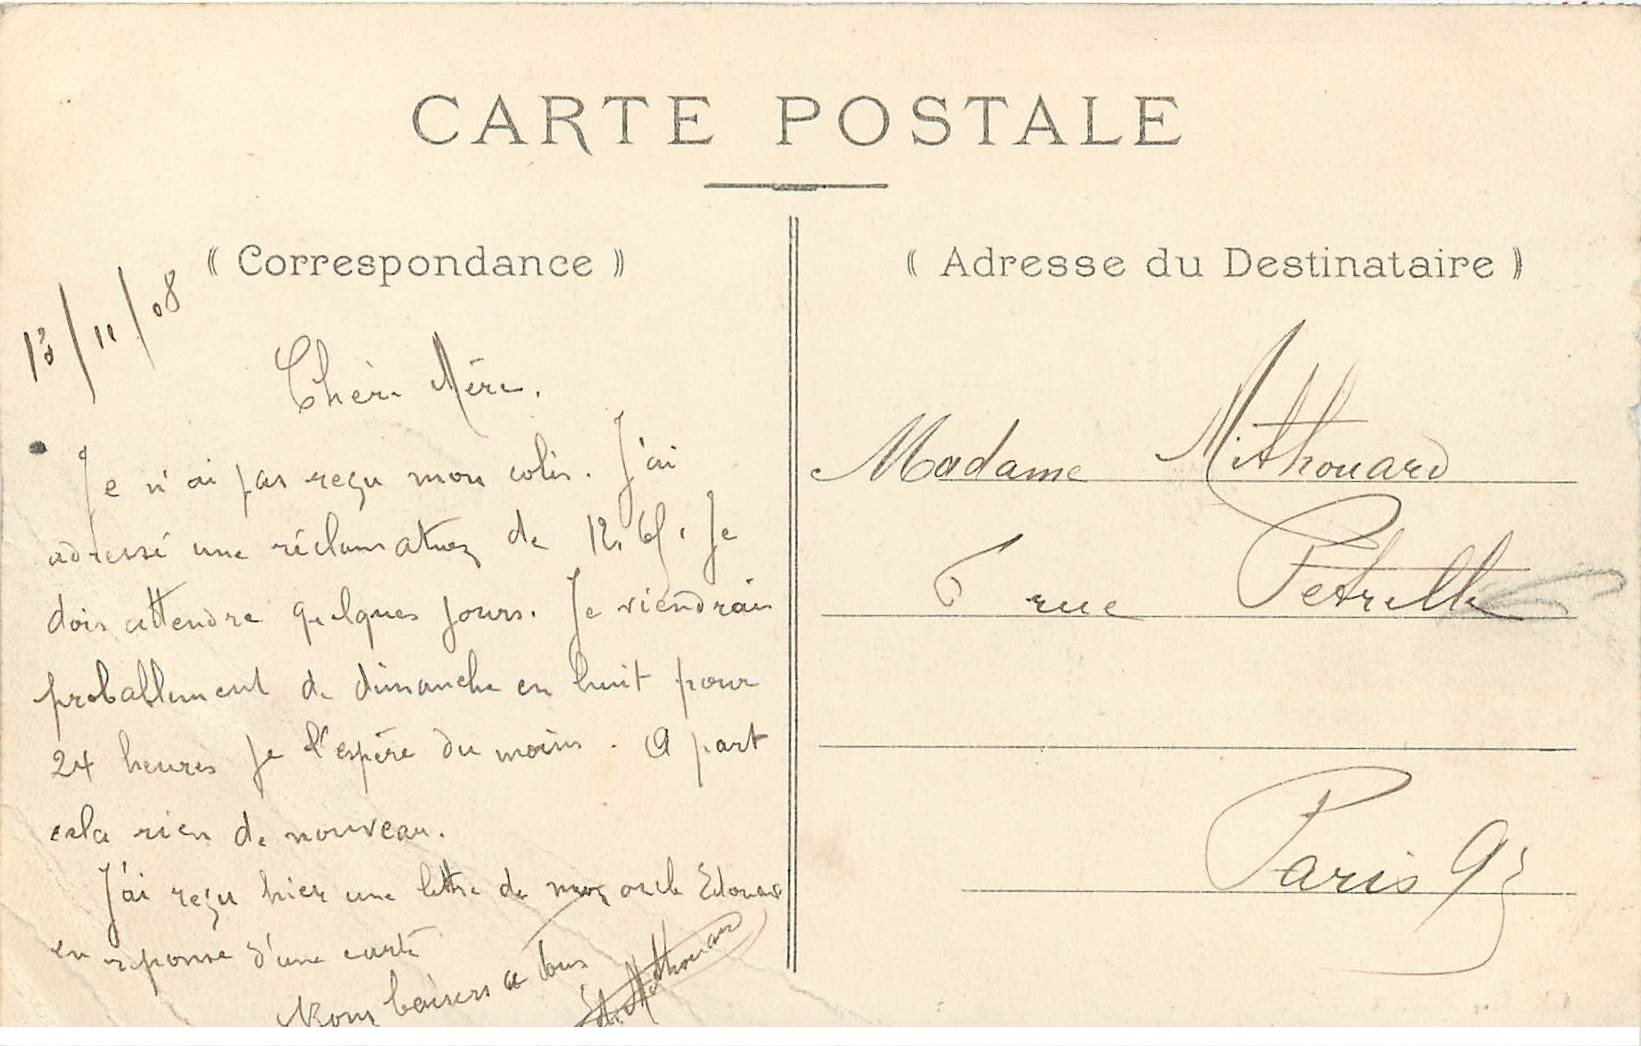 CARTE POSTALE
(( Correspondance ))
13/11/08
Chère Mère.
Je n'ai pas reçu mon colis. J'ai
adressé une réclamation de 12.65. Je
dois attendre quelques jours. Je viendrais
probablement de dimanche en huit pour
24 heures je l'espère du moins. A part
cela rien de nouveau.
J'ai reçu hier une lettre de mon oncle Edouard
en réponse d'une carte
baisers a tous
Mithouard
(( Adresse du Destinataire ))
Madame Mithouard
6 rue Petrelle
Paris 9e